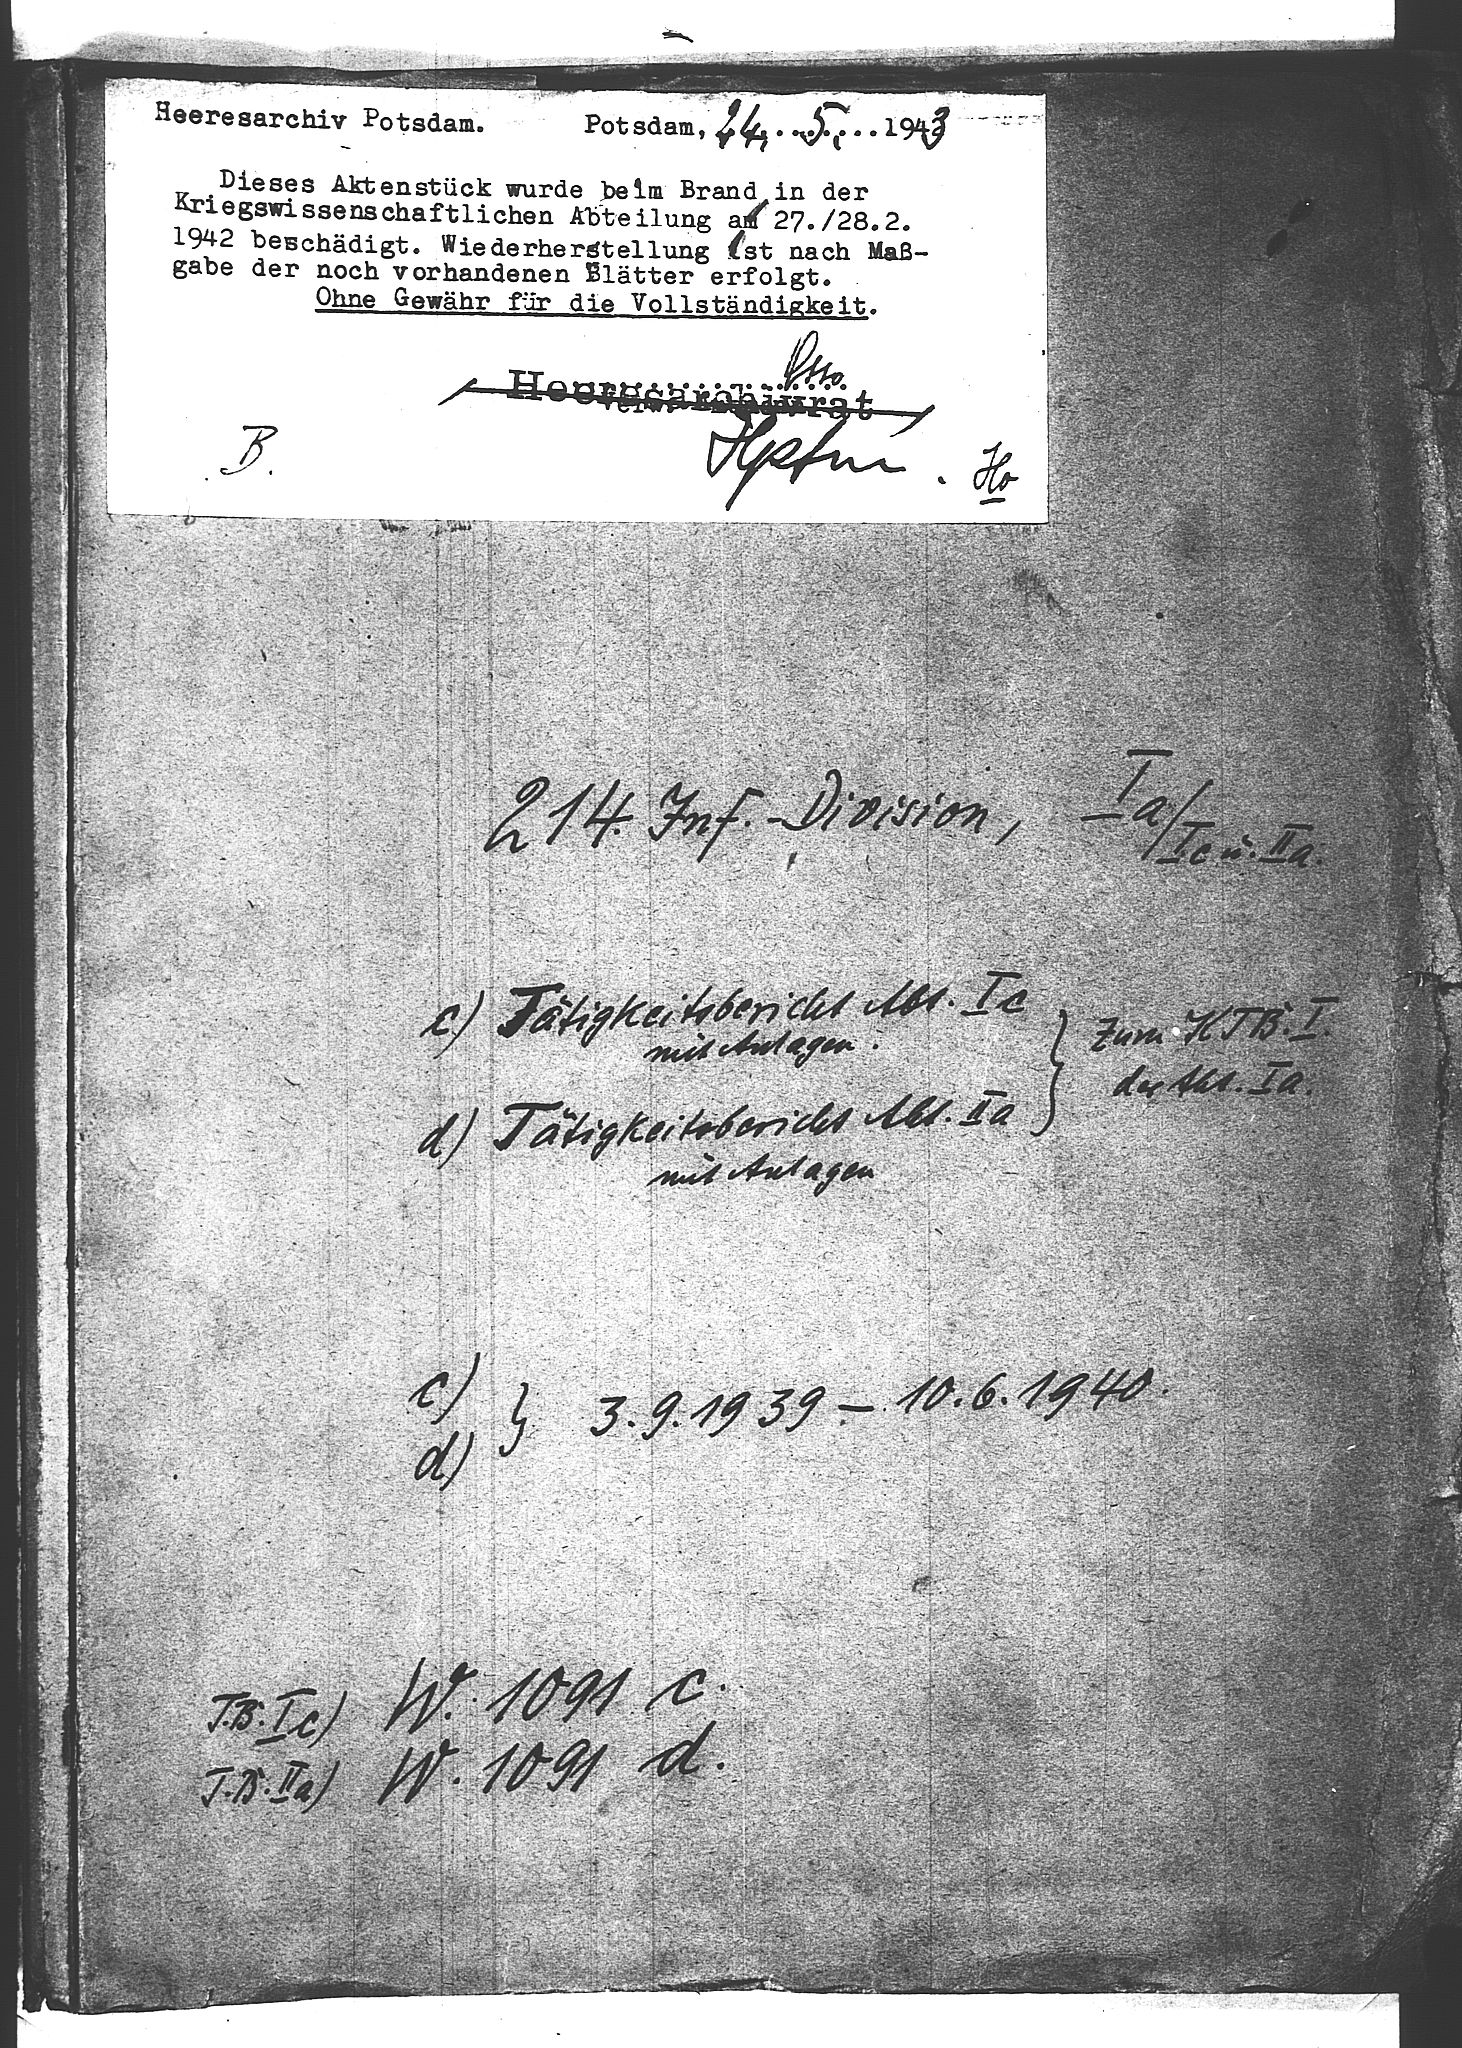 Heeresarchiv Potsdam. Potsdam, 24. 5. 1943
Dieses Aktenstück wurde beim Brand in der
Kriegswissenschaftlichen Abteilung am 27./28.2.
1942 beschädigt. Wiederherstellung ist nach Maß-
gabe der noch vorhandenen Blätter erfolgt.
Ohne Gewähr für die Vollständigkeit.
Heeresarchivrat
B.
Ho
214. Inf.-Division, Ia/
Ic u. IIa.
c) Tätigkeitsbericht Abt. Ic
mit Anlagen.
} zum KTB. I.
der Abt. Ia.
d) Tätigkeitsbericht Abt. IIa
mit Anlagen
c)
d)
} 3.9.1939 – 10.6.1940.
T.B. Ic) W. 1091 c.
T.B. IIa) W. 1091 d.